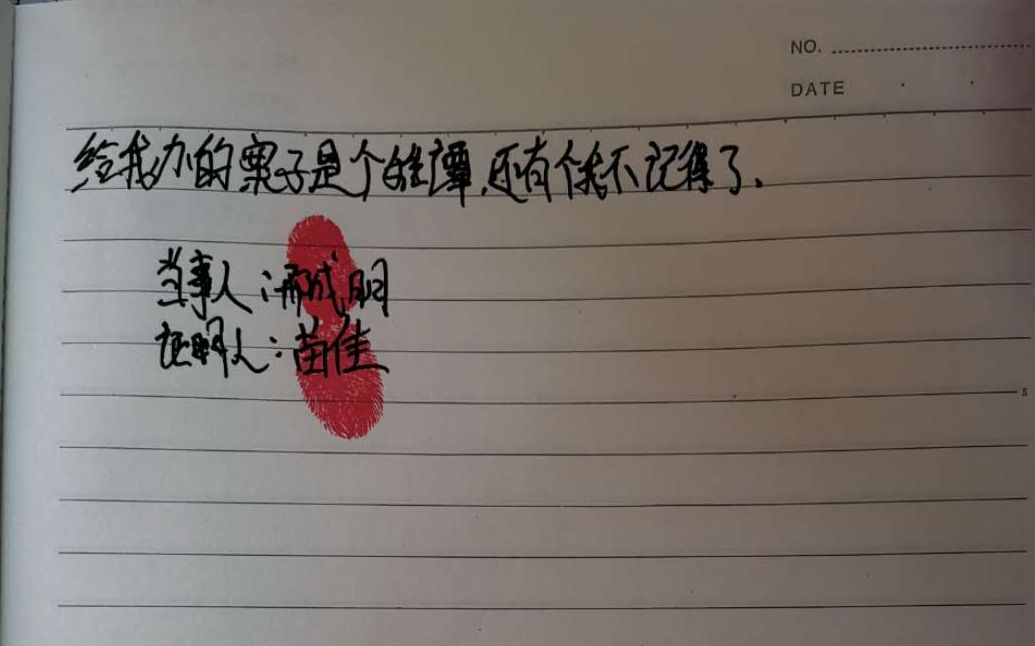 NO.
DATE
给我办的案子是个姓谭,还有个我不记得了.
当事人:邢成明
证明人:苗佳